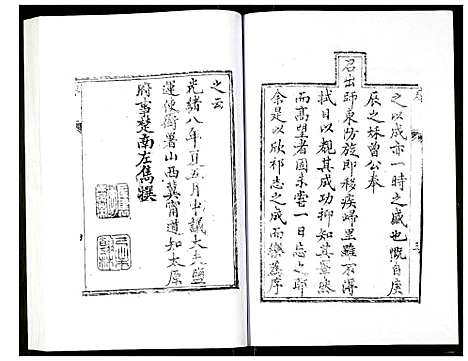 之以成亦一時之盛也慨自庚
辰之妹曾公奉
召出師東防旋即移疾歸里雖不得
拭目以觀其成功抑知其睪然
而高望者固未嘗一日忘之耶
余是以欣祁志之成而樂為序
之云
光緒八年夏五月中議大夫鹽
運使銜署山西冀甯道知太原
府事楚南左雋撰